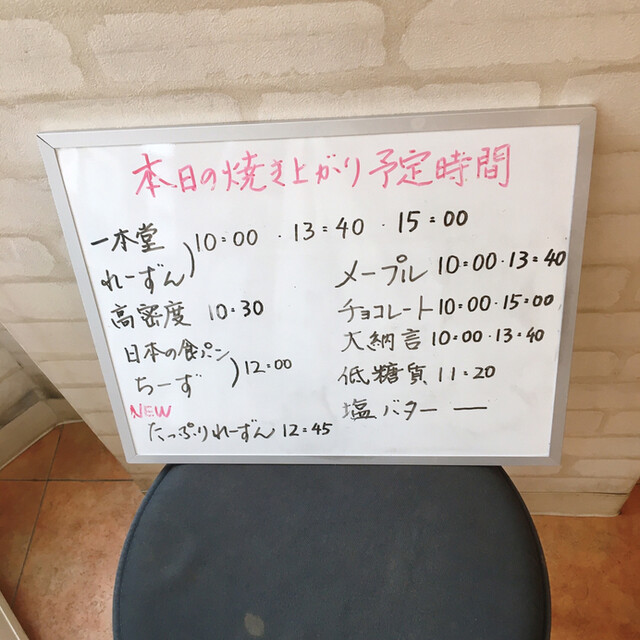 本日の焼き上がり予定時間
一本堂
れーずん ) 10:00 ・ 13:40 ・ 15:00
高密度 10:30
日本の食パン
ちーず ) 12:00
NEW
たっぷりれーずん 12:45
メープル 10:00・13:40
チョコレート 10:00・15:00
大納言 10:00・13:40
低糖質 11:20
塩バター ー